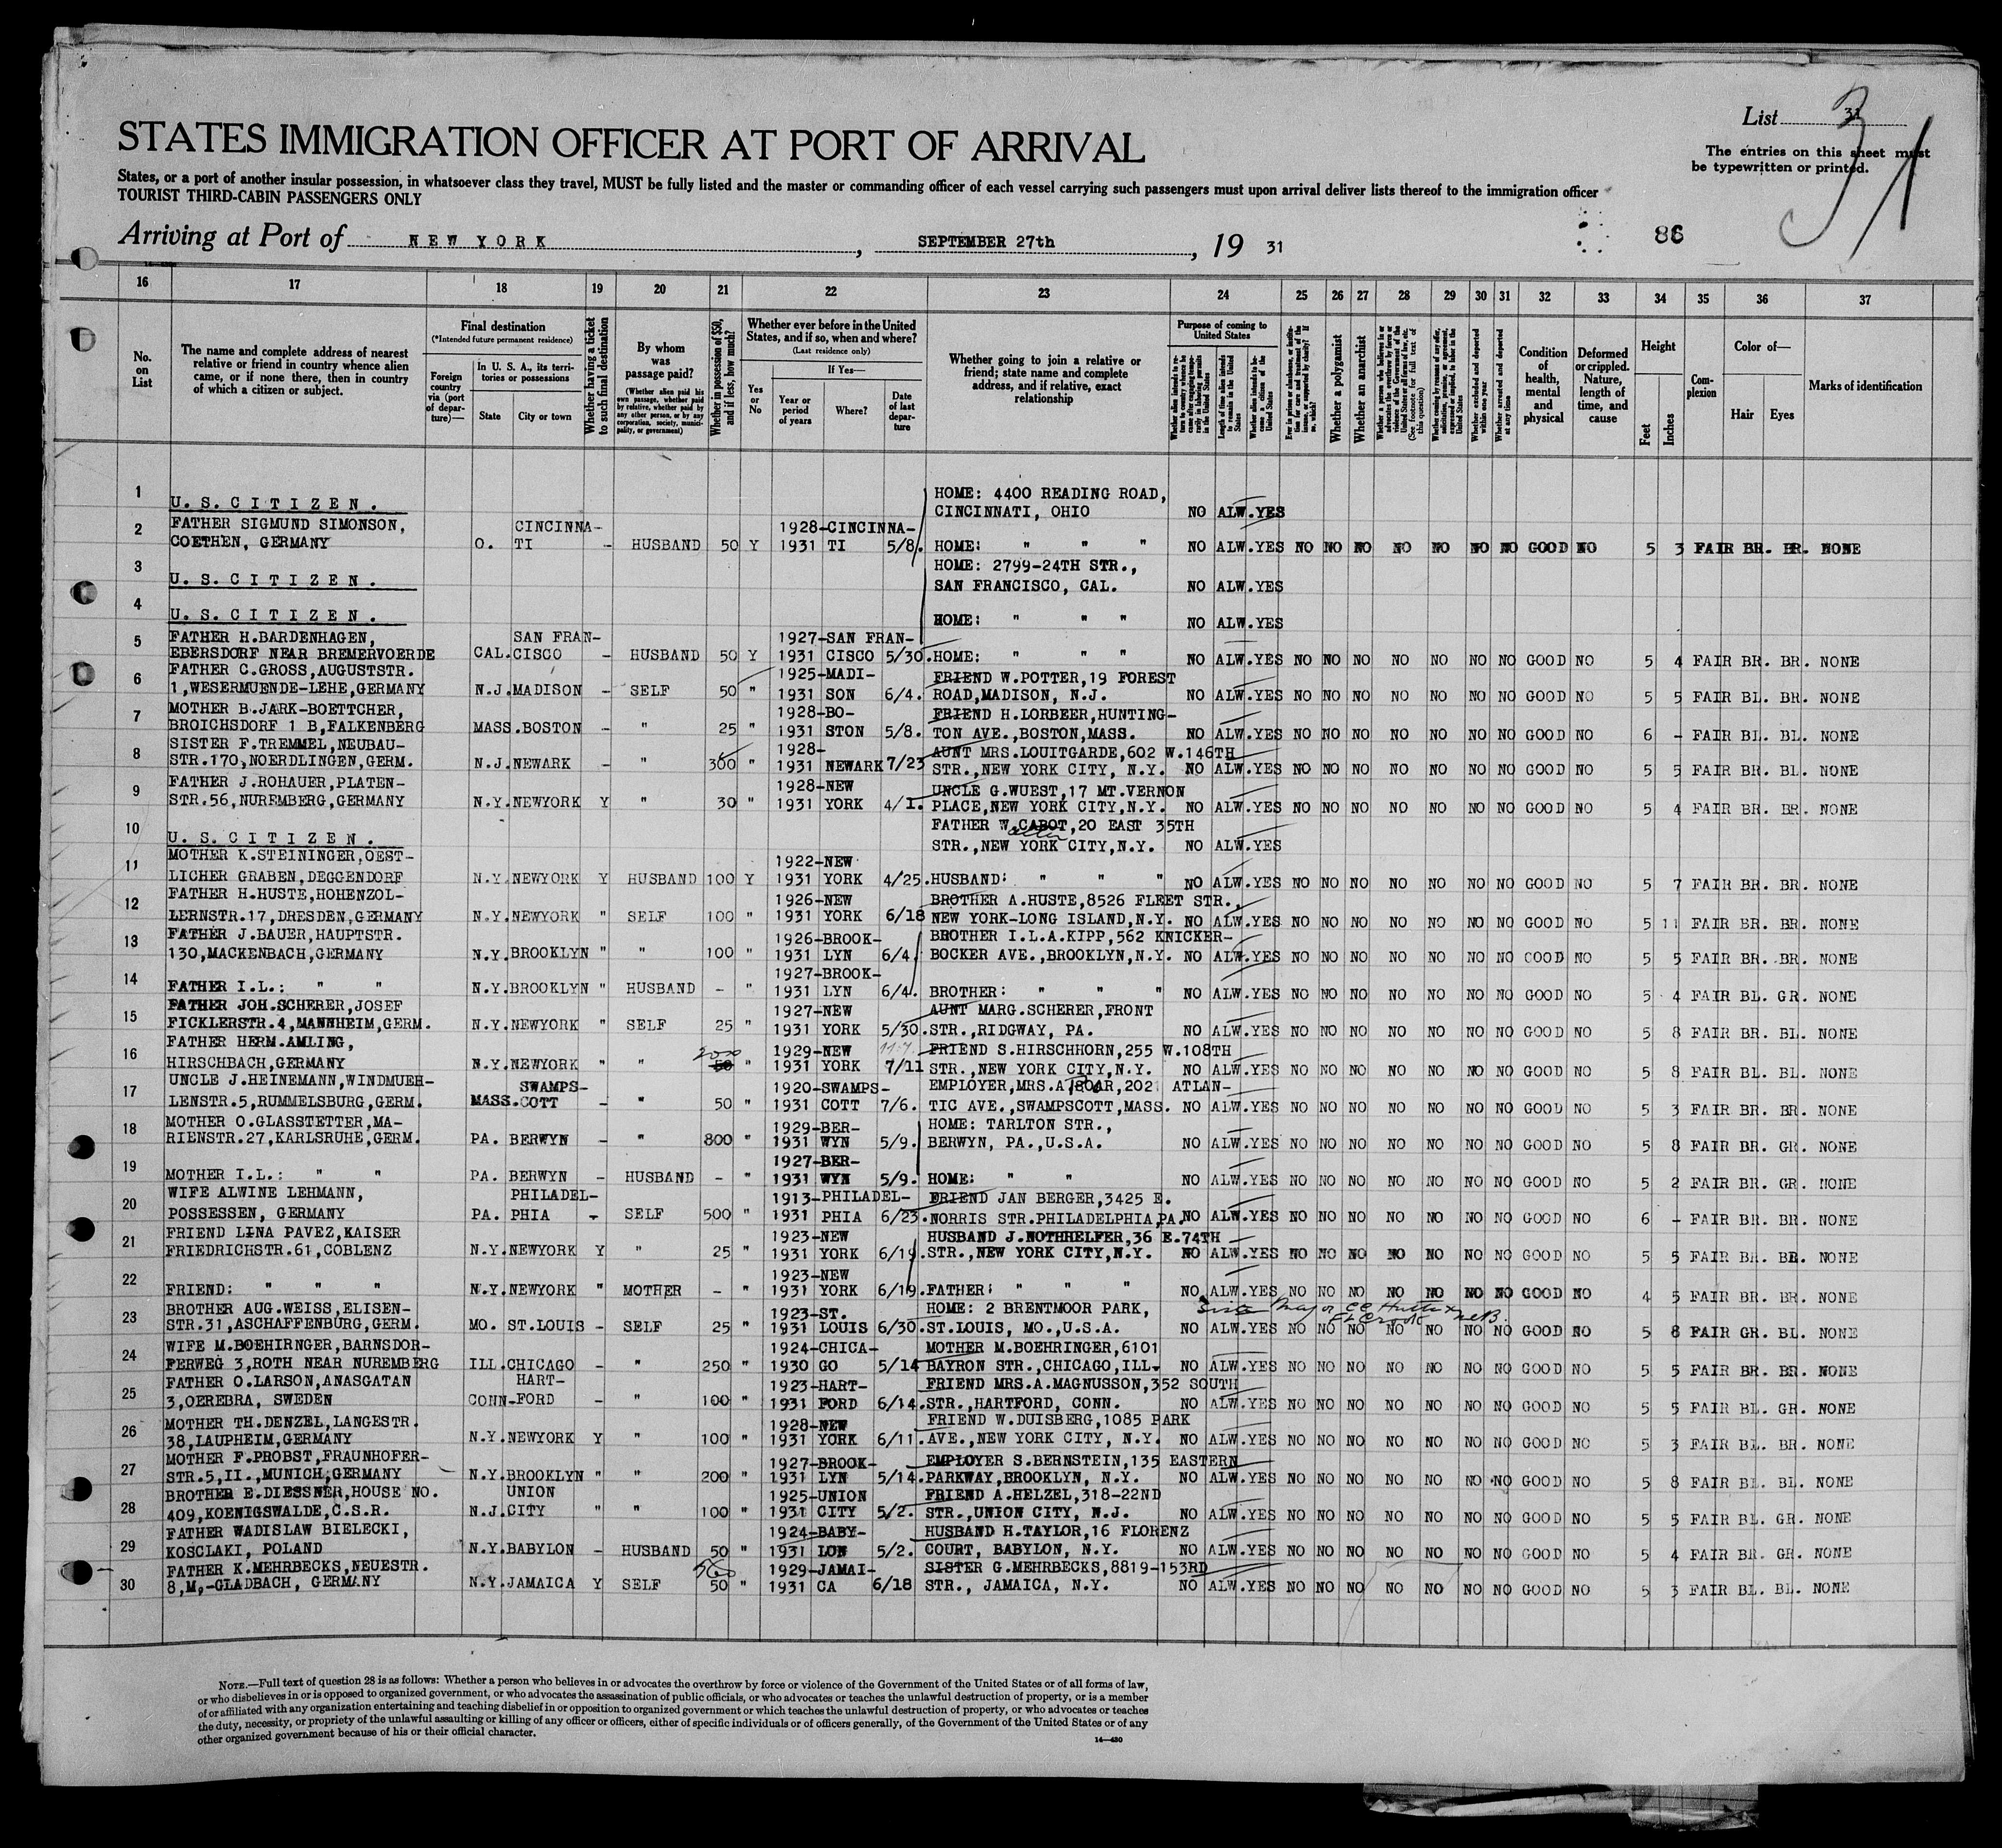 List 31
31
STATES IMMIGRATION OFFICER AT PORT OF ARRIVAL
The entries on this sheet must
be typewritten or printed.
States, or a port of another insular possession, in whatsoever class they travel, MUST be fully listed and the master or commanding officer of each vessel carrying such passengers must upon arrival deliver lists thereof to the immigration officer
TOURIST THIRD-CABIN PASSENGERS ONLY
Arriving at Port of NEW YORK, SEPTEMBER 27th, 19 31
86
16 17 18 19 20 21 22 23 24 25 26 27 28 29 30 31 32 33 34 35 36 37
No. on List
The name and complete address of nearest relative or friend in country whence alien came, or if none there, then in country of which a citizen or subject.
Final destination
(*Intended future permanent residence)
Foreign country via (port of departure)—
In U. S. A., its territories or possessions
State
City or town
Whether having a ticket to such final destination
By whom was passage paid?
(Whether alien paid his own passage, whether paid by relative, whether paid by any other person, or by any corporation, society, municipality, or government)
Whether in possession of $50, and if less, how much?
Whether ever before in the United States, and if so, when and where?
(Last residence only)
Yes or No
If Yes—
Year or period of years
Where?
Date of last departure
Whether going to join a relative or friend; state name and complete address, and if relative, exact relationship
Purpose of coming to United States
Length of time alien intends to remain in the United States
Whether alien intends to become a citizen of the United States
Whether a polygamist
Whether an anarchist
(See footnote for full text of this question)
Whether excluded and deported within one year
Whether arrested and deported at any time
Condition of health, mental and physical
Deformed or crippled. Nature, length of time, and cause
Height
Feet
Inches
Complexion
Color of—
Hair
Eyes
Marks of identification
1 HOME: 4400 READING ROAD,
U. S. CITIZEN. CINCINNATI, OHIO NO ALW. YES
2 FATHER SIGMUND SIMONSON, CINCINNA- 1928-CINCINNA-
COETHEN, GERMANY O. TI - HUSBAND 50 Y 1931 TI 5/8. HOME: " " " NO ALW. YES NO NO NO NO NO NO NO GOOD NO 5 3 FAIR BR. BR. NONE
3 HOME: 2799-24TH STR.,
U. S. CITIZEN. SAN FRANCISCO, CAL. NO ALW. YES
4 U. S. CITIZEN. HOME: " " " NO ALW. YES
5 FATHER H.BARDENHAGEN, SAN FRAN- 1927-SAN FRAN-
EBERSDORF NEAR BREMERVOERDE CAL. CISCO - HUSBAND 50 Y 1931 CISCO 5/30. HOME: " " " NO ALW. YES NO NO NO NO NO NO NO GOOD NO 5 4 FAIR BR. BR. NONE
6 FATHER C.GROSS,AUGUSTSTR. 1925-MADI- FRIEND W.POTTER,19 FOREST
1,WESERMUENDE-LEHE,GERMANY N.J. MADISON - SELF 50 " 1931 SON 6/4. ROAD,MADISON, N.J. NO ALW. YES NO NO NO NO NO NO NO GOOD NO 5 5 FAIR BL. BR. NONE
7 MOTHER B.JARK-BOETTCHER, 1928-BO- FRIEND H.LORBEER,HUNTING-
BROICHSDORF 1 B,FALKENBERG MASS. BOSTON - " 25 " 1931 STON 5/8. TON AVE.,BOSTON,MASS. NO ALW. YES NO NO NO NO NO NO NO GOOD NO 6 - FAIR BL. BL. NONE
8 SISTER F.TREMMEL,NEUBAU- 1928- AUNT MRS.LOUITGARDE,602 W.146TH
STR.170,NOERDLINGEN,GERM. N.J. NEWARK - " 300 " 1931 NEWARK 7/23 STR.,NEW YORK CITY, N.Y. NO ALW. YES NO NO NO NO NO NO NO GOOD NO 5 5 FAIR BR. BL. NONE
9 FATHER J.ROHAUER,PLATEN- 1928-NEW UNCLE G.WUEST,17 MT.VERNON
STR.56,NUREMBERG,GERMANY N.Y. NEWYORK Y " 30 " 1931 YORK 4/1. PLACE,NEW YORK CITY,N.Y. NO ALW. YES NO NO NO NO NO NO NO GOOD NO 5 4 FAIR BR. BR. NONE
10 FATHER W.CABOT,20 EAST 35TH
U. S. CITIZEN. STR.,NEW YORK CITY,N.Y. NO ALW. YES
11 MOTHER K.STEININGER,OEST- 1922-NEW
LICHER GRABEN,DEGGENDORF N.Y. NEWYORK Y HUSBAND 100 Y 1931 YORK 4/25. HUSBAND: " " " NO ALW. YES NO NO NO NO NO NO NO GOOD NO 5 7 FAIR BR. BR. NONE
12 FATHER H.HUSTE,HOHENZOL- 1926-NEW BROTHER A.HUSTE,8526 FLEET STR.,
LERNSTR.17,DRESDEN,GERMANY N.Y. NEWYORK " SELF 100 " 1931 YORK 6/18 NEW YORK-LONG ISLAND,N.Y. NO ALW. YES NO NO NO NO NO NO NO GOOD NO 5 11 FAIR BR. BR. NONE
13 FATHER J.BAUER,HAUPTSTR. 1926-BROOK- BROTHER I.L.A.KIPP,562 KNICKER-
130,MACKENBACH,GERMANY N.Y. BROOKLYN " " 100 " 1931 LYN 6/4. BOCKER AVE.,BROOKLYN,N.Y. NO ALW. YES NO NO NO NO NO NO NO GOOD NO 5 5 FAIR BR. BR. NONE
14 1927-BROOK-
FATHER I.L.: " " N.Y. BROOKLYN " HUSBAND - " 1931 LYN 6/4. BROTHER: " " " NO ALW. YES NO NO NO NO NO NO NO GOOD NO 5 4 FAIR BL. GR. NONE
15 FATHER JOH.SCHERER,JOSEF 1927-NEW AUNT MARG.SCHERER,FRONT
FICKLERSTR.4,MANNHEIM,GERM. N.Y. NEWYORK " SELF 25 " 1931 YORK 5/30. STR.,RIDGWAY, PA. NO ALW. YES NO NO NO NO NO NO NO GOOD NO 5 8 FAIR BR. BL. NONE
16 FATHER HERM.AMLING, 1929-NEW FRIEND S.HIRSCHHORN,255 W.108TH
HIRSCHBACH,GERMANY N.Y. NEWYORK " " 50 " 1931 YORK 7/11 STR.,NEW YORK CITY,N.Y. NO ALW. YES NO NO NO NO NO NO NO GOOD NO 5 8 FAIR BL. BL. NONE
17 UNCLE J.HEINEMANN,WINDMUEH- SWAMPS- 1920-SWAMPS- EMPLOYER,MRS. 202 ATLAN-
LENSTR.5,RUMMELSBURG,GERM. MASS. COTT - " 50 " 1931 COTT 7/6. TIC AVE.,SWAMPSCOTT,MASS. NO ALW. YES NO NO NO NO NO NO NO GOOD NO 5 3 FAIR BR. BR. NONE
18 MOTHER O.GLASSTETTER,MA- 1929-BER- HOME: TARLTON STR.,
RIENSTR.27,KARLSRUHE,GERM. PA. BERWYN - " 800 " 1931 WYN 5/9. BERWYN, PA.,U.S.A. NO ALW. YES NO NO NO NO NO NO NO GOOD NO 5 8 FAIR BR. GR. NONE
19 1927-BER-
MOTHER I.L.: " " PA. BERWYN - HUSBAND - " 1931 WYN 5/9. HOME: " " NO ALW. YES NO NO NO NO NO NO NO GOOD NO 5 2 FAIR BR. GR. NONE
20 WIFE ALWINE LEHMANN, PHILADEL- 1913-PHILADEL- FRIEND JAN BERGER,3425 E.
POSSESSEN, GERMANY PA. PHIA - SELF 500 " 1931 PHIA 6/23. NORRIS STR.PHILADELPHIA,PA. NO ALW. YES NO NO NO NO NO NO NO GOOD NO 6 - FAIR BR. BR. NONE
21 FRIEND LINA PAVEZ,KAISER 1923-NEW HUSBAND J.NOTHHELFER,36 E.74TH
FRIEDRICHSTR.61,COBLENZ N.Y. NEWYORK Y " 25 " 1931 YORK 6/19. STR.,NEW YORK CITY,N.Y. NO ALW. YES NO NO NO NO NO NO NO GOOD NO 5 5 FAIR BR. BR. NONE
22 1923-NEW
FRIEND: " " " N.Y. NEWYORK " MOTHER - " 1931 YORK 6/19. FATHER: " " " NO ALW. YES NO NO NO NO NO NO NO GOOD NO 4 5 FAIR BR. BR. NONE
23 BROTHER AUG.WEISS,ELISEN- 1923-ST. HOME: 2 BRENTMOOR PARK,
STR.31,ASCHAFFENBURG,GERM. MO. ST.LOUIS - SELF 25 " 1931 LOUIS 6/30. ST.LOUIS, MO.,U.S.A. NO ALW. YES NO NO NO NO NO NO NO GOOD NO 5 8 FAIR GR. BL. NONE
24 WIFE M.BOEHIRNGER,BARNSDOR- 1924-CHICA- MOTHER M.BOEHRINGER,6101
FERWEG 3,ROTH NEAR NUREMBERG ILL. CHICAGO - " 250 " 1930 GO 5/14 BAYRON STR.,CHICAGO,ILL. NO ALW. YES NO NO NO NO NO NO NO GOOD NO 5 5 FAIR BR. BR. NONE
25 FATHER O.LARSON,ANASGATAN HART- 1923-HART- FRIEND MRS.A.MAGNUSSON,352 SOUTH
3,OEREBRA, SWEDEN CONN. FORD - " 100 " 1931 FORD 6/14. STR.,HARTFORD, CONN. NO ALW. YES NO NO NO NO NO NO NO GOOD NO 5 5 FAIR BL. GR. NONE
26 MOTHER TH.DENZEL,LANGESTR. 1928-NEW FRIEND W.DUISBERG,1085 PARK
38,LAUPHEIM,GERMANY N.Y. NEWYORK Y " 100 " 1931 YORK 6/11. AVE.,NEW YORK CITY, N.Y. NO ALW. YES NO NO NO NO NO NO NO GOOD NO 5 3 FAIR BL. BR. NONE
27 MOTHER F.PROBST,FRAUNHOFER- 1927-BROOK- EMPLOYER S.BERNSTEIN,135 EASTERN
STR.5,II.,MUNICH,GERMANY N.Y. BROOKLYN " " 200 " 1931 LYN 5/14. PARKWAY,BROOKLYN, N.Y. NO ALW. YES NO NO NO NO NO NO NO GOOD NO 5 8 FAIR BL. BL. NONE
28 BROTHER E.DIESSNER,HOUSE NO. UNION 1925-UNION FRIEND A.HELZEL,318-22ND
409,KOENIGSWALDE,C.S.R. N.J. CITY " " 100 " 1931 CITY 5/2. STR.,UNION CITY, N.J. NO ALW. YES NO NO NO NO NO NO NO GOOD NO 5 5 FAIR BL. GR. NONE
29 FATHER WADISLAW BIELECKI, 1924-BABY- HUSBAND H.TAYLOR,16 FLORENZ
KOSCLAKI, POLAND N.Y. BABYLON - HUSBAND 50 " 1931 LON 5/2. COURT, BABYLON, N.Y. NO ALW. YES NO NO NO NO NO NO NO GOOD NO 5 4 FAIR BR. GR. NONE
30 FATHER K.MEHRBECKS,NEUESTR. 1929-JAMAI- SISTER G.MEHRBECKS,8819-153RD
8,M,-GLADBACH, GERMANY N.Y. JAMAICA Y SELF 50 " 1931 CA 6/18 STR., JAMAICA, N.Y. NO ALW. YES NO NO NO NO NO NO NO GOOD NO 5 3 FAIR BL. BL. NONE
NOTE.—Full text of question 28 is as follows: Whether a person who believes in or advocates the overthrow by force or violence of the Government of the United States or of all forms of law,
or who disbelieves in or is opposed to organized government, or who advocates the assassination of public officials, or who advocates or teaches the unlawful destruction of property, or is a member
of or affiliated with any organization entertaining and teaching disbelief in or opposition to organized government or which teaches the unlawful destruction of property, or who advocates or teaches
the duty, necessity, or propriety of the unlawful assaulting or killing of any officer or officers, either of specific individuals or of officers generally, of the Government of the United States or of any
other organized government because of his or their official character.
14—430